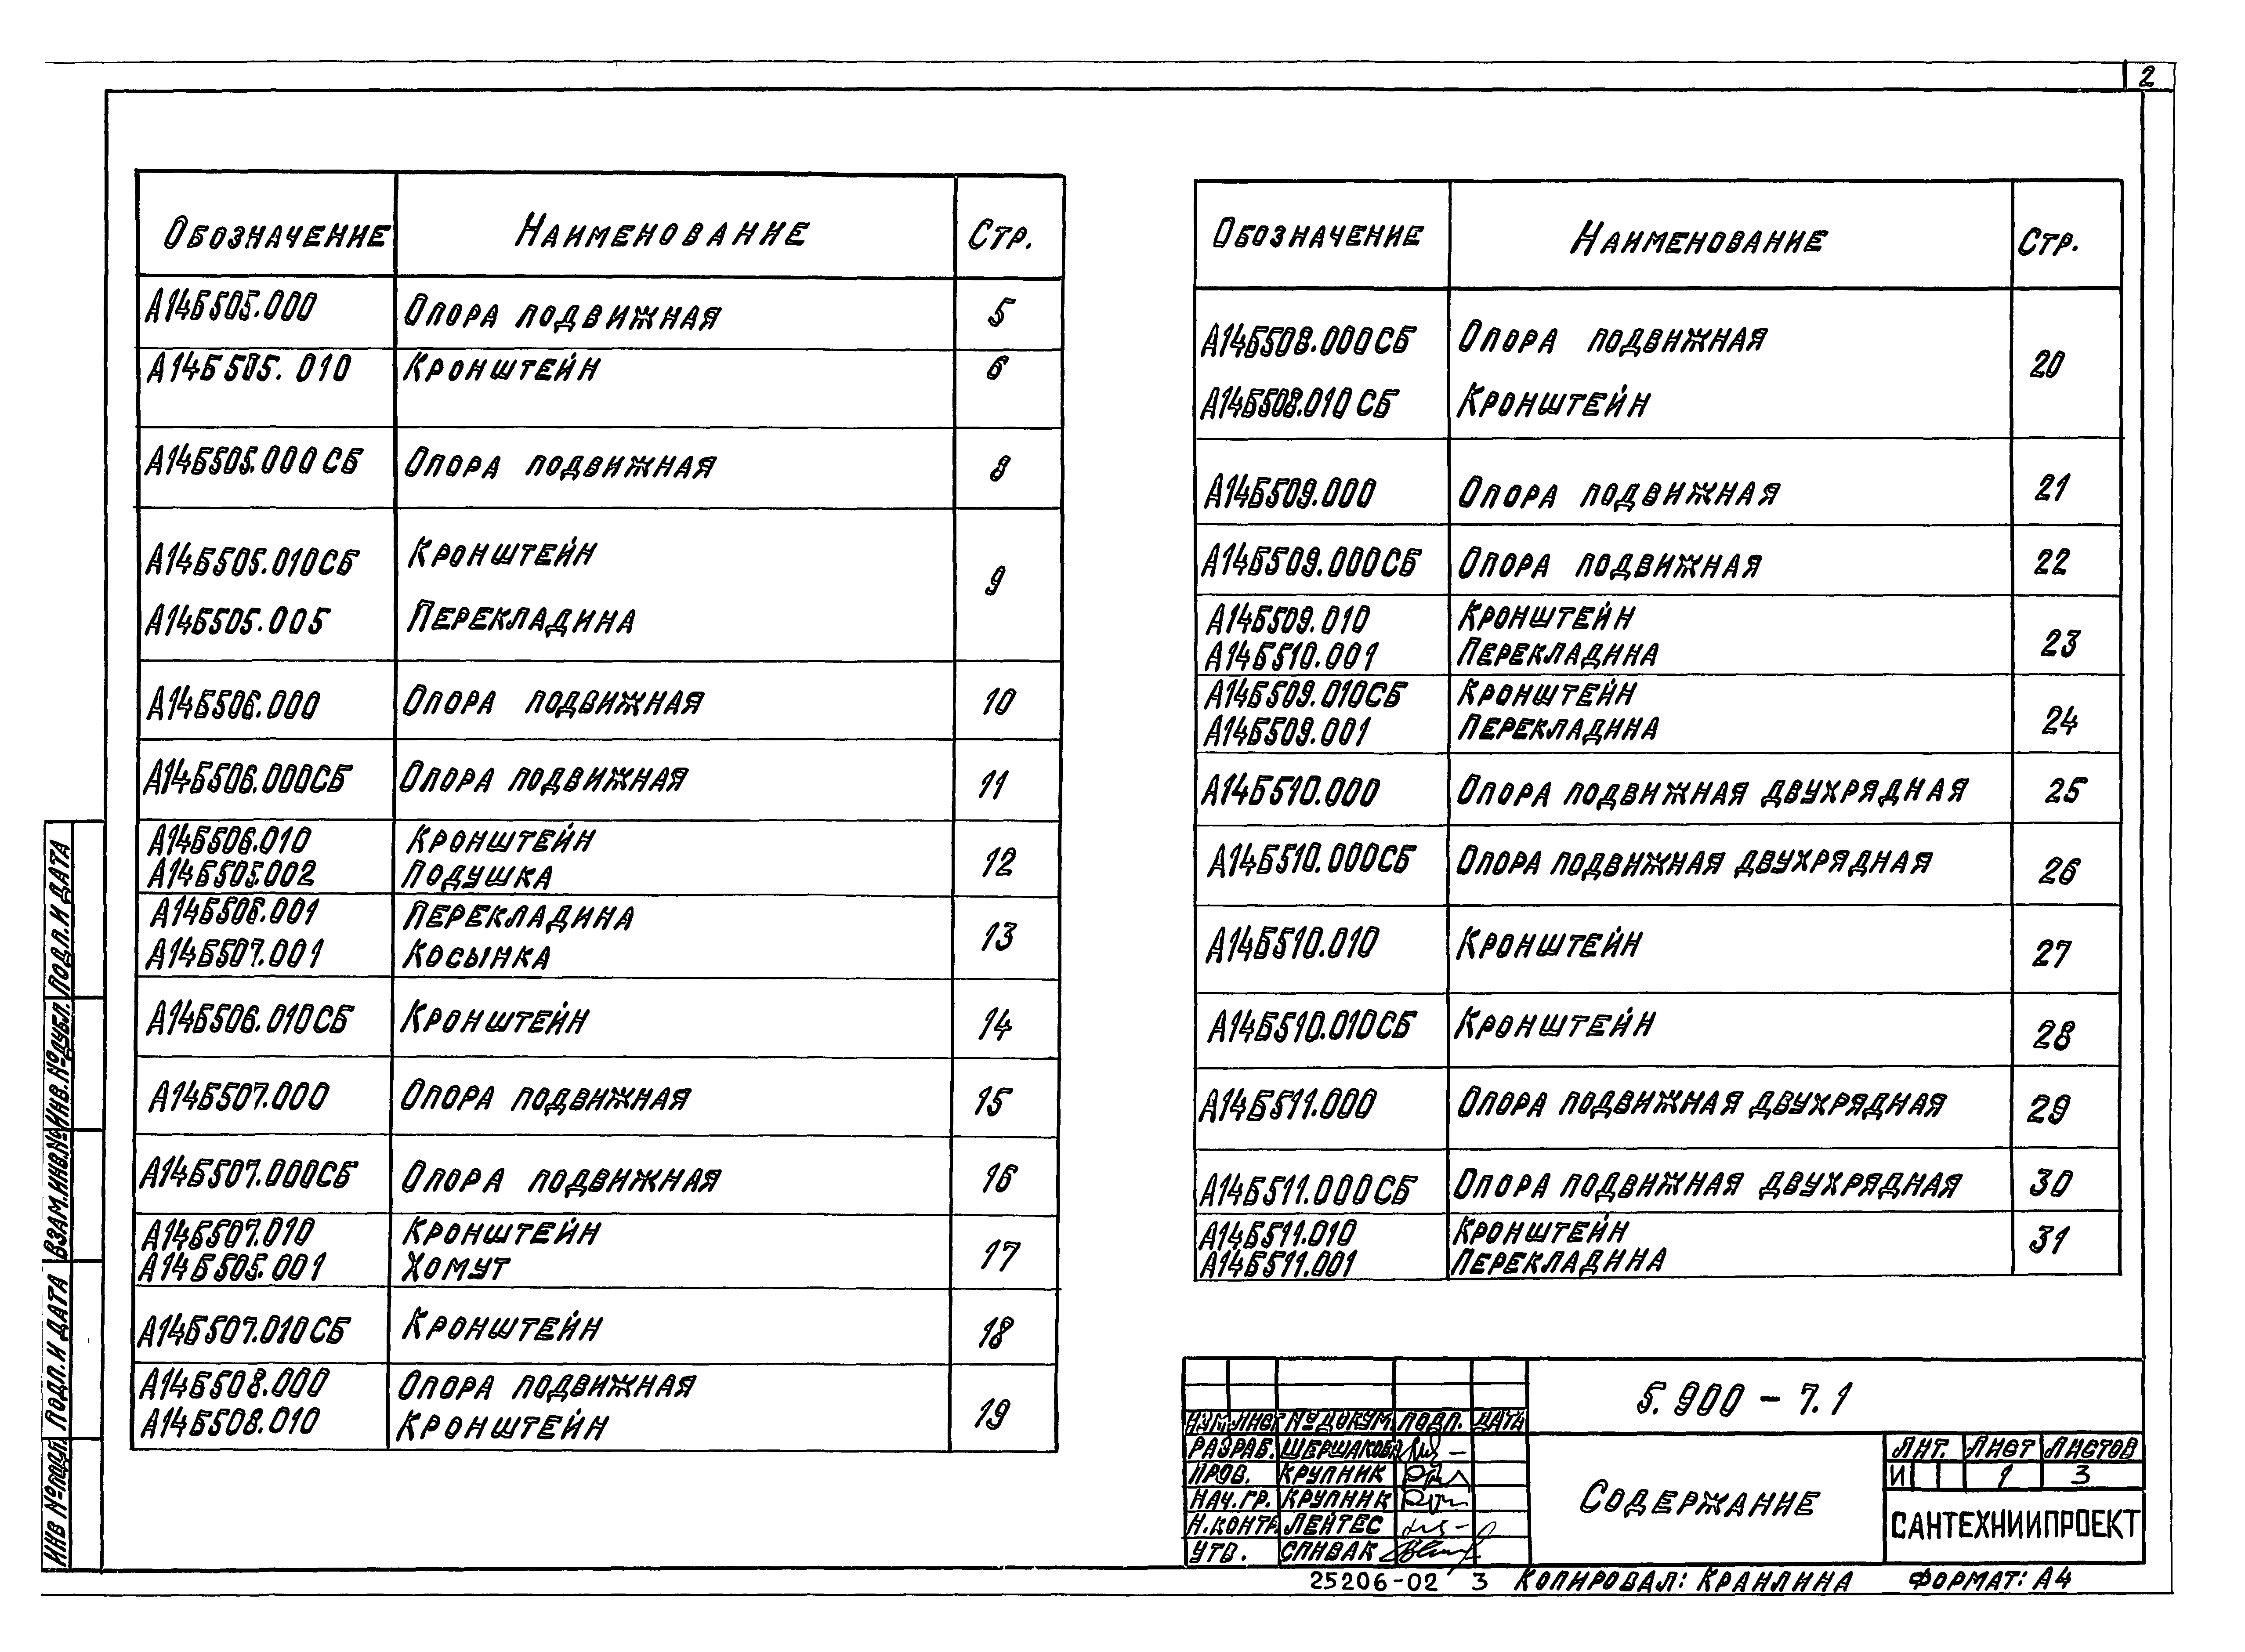 2
Обозначение Наименование Стр.
А14Б505.000 Опора подвижная 5
А14Б505.010 Кронштейн 6
А14Б505.000СБ Опора подвижная 8
А14Б505.010СБ Кронштейн 9
А14Б505.005 Перекладина
А14Б506.000 Опора подвижная 10
А14Б506.000СБ Опора подвижная 11
А14Б506.010 Кронштейн 12
А14Б505.002 Подушка
А14Б506.001 Перекладина 13
А14Б507.001 Косынка
А14Б506.010СБ Кронштейн 14
А14Б507.000 Опора подвижная 15
А14Б507.000СБ Опора подвижная 16
А14Б507.010 Кронштейн 17
А14Б505.001 Хомут
А14Б507.010СБ Кронштейн 18
А14Б508.000 Опора подвижная 19
А14Б508.010 Кронштейн
Обозначение Наименование Стр.
А14Б508.000СБ Опора подвижная 20
А14Б508.010СБ Кронштейн
А14Б509.000 Опора подвижная 21
А14Б509.000СБ Опора подвижная 22
А14Б509.010 Кронштейн 23
А14Б510.001 Перекладина
А14Б509.010СБ Кронштейн 24
А14Б509.001 Перекладина
А14Б510.000 Опора подвижная двухрядная 25
А14Б510.000СБ Опора подвижная двухрядная 26
А14Б510.010 Кронштейн 27
А14Б510.010СБ Кронштейн 28
А14Б511.000 Опора подвижная двухрядная 29
А14Б511.000СБ Опора подвижная двухрядная 30
А14Б511.010 Кронштейн 31
А14Б511.001 Перекладина
Подп. и дата
Инв. № дубл.
Взам. инв. №
Подп. и дата
Инв № подл.
5.900 – 7.1
Изм. Лист № докум. Подп. Дата
Разраб. Шершакова
Пров. Крупник
Нач. гр. Крупник
Н. контр. Лейтес
Утв. Спивак
Содержание
Лит. Лист Листов
И 1 3
САНТЕХНИИПРОЕКТ
25206-02 3 Копировал: Кранлина Формат: А4